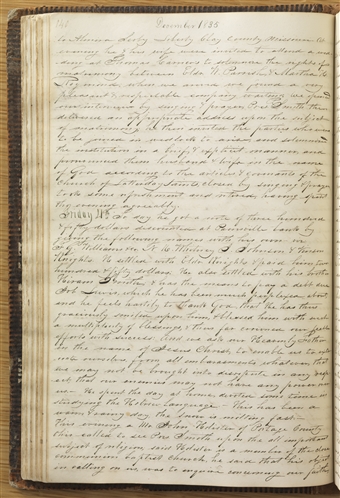 December 1835
to Almira Scoby Liberty Clay County Missouri. In
evening he & his wife were invited to attend a wed
ding at Thomas Carricos to solemnize the rights of
matrimony between Wm W. Parrish & Martha H.
Raymond when we arrived we found a very
pleasant & respectable company waiting we opened
our interview by singing & prayer Pres. Smith then
delivered an appropriate address upon the subject
of matrimony he then invited the parties who were
to be joined in wedlock to arise and solemnized
the institution in a brief & manner and
pronounced them husband & wife in the name
of God according to the articles & covenants of the
Church of Latter day Saints closed by singing & prayer
took some refreshment and retired having spent
the evening agreeably.
Friday 4th To day he got a note of three hundred
& fifty dollars discounted at Painsville bank by
giving the following names with his own
F. G. Williams & co. N. K. Whitney J. Johnson & Vinson
Knights. He settled with Elder Knights & paid him two
hundred & fifty dollars. He also settled with his brother
Hiram Smith & has the means to pay a debt due
Job Lewis which he has been much perplexed about
and he feels heartily to thank God that He has thus
graciously smiled upon him & blessed him with such
a multiplicity of blessings & thus far crowned our feeble
efforts with success. And we ask our Heavenly Father
in the name of Jesus Christ to enable us to extri
cate ourselves from all embarrassments whatever that
we may not be brought into disrepute in any resp
ect that our enemies may not have any power over
us. He spent the day at home devoted some time in
studying the Hebrew language. This has been a
warm & rainy day the snow is melting fast.
This evening a Mr John Holister of Portage County
Ohio called to see Pres Smith upon the all important
subject of religion said Holister is a member of the close
communion baptist church, he said that his object
in calling on us was to inquire concerning our faith